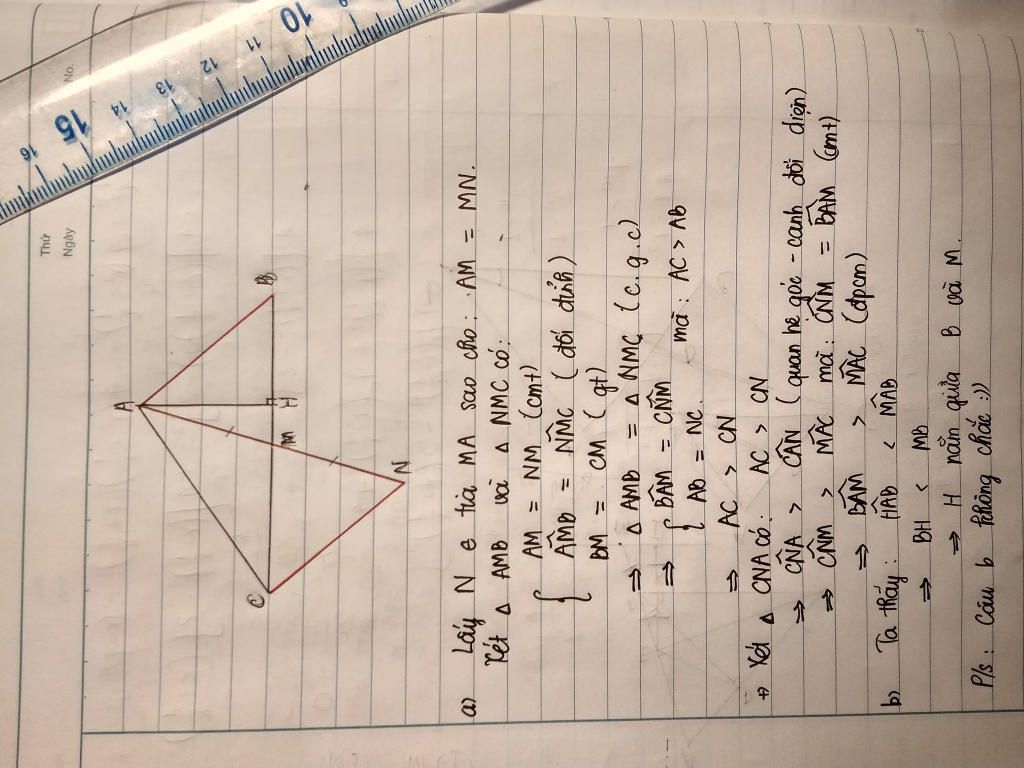 No.
Thứ
Ngày
16
15
14
13
12
11
10
9
8
A
B
C
H
M
N
a) Lấy N ∈ tia MA sao cho: AM = MN.
Xét Δ AMB và Δ NMC có:
AM = NM (cmt)
{ AM̂B = NM̂C (đối đỉnh)
BM = CM (gt)
⇒ Δ AMB = Δ NMC (c.g.c)
⇒ { BÂM = CN̂M
AB = NC.
mà: AC > AB
⇒ AC > CN
+) Xét Δ CNA có: AC > CN
⇒ CN̂A > CÂN (quan hệ góc - cạnh đối diện)
⇒ CN̂M > MÂC mà: CN̂M = BÂM (cmt)
⇒ BÂM > MÂC (đpcm)
b) Ta thấy: HÂB < MÂB
⇒ BH < MB
⇒ H nằm giữa B và M.
P/s: Câu b không chắc :))